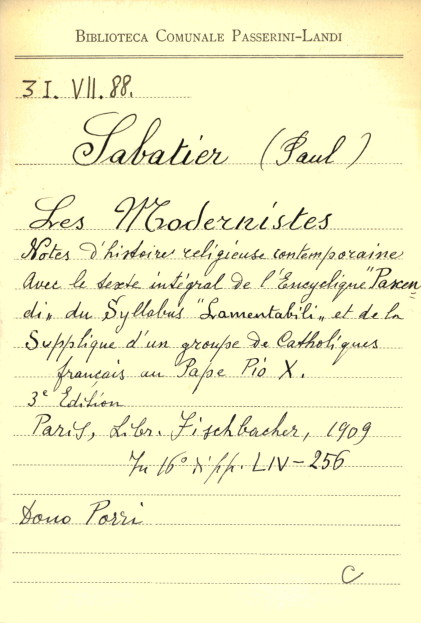 BIBLIOTECA COMUNALE PASSERINI-LANDI
3I. VII. 88.
Sabatier (Paul)
Les Modernistes
Notes d'histoire religieuse contemporaine
Avec le texte intégral de l'Encyclique "Pascen
di„ du Syllabus "Lamentabili„ et de la
Supplique d'un groupe de Catholiques
français au Pape Pio X.
3e Édition
Paris, Libr. Fischbacher, 1909
In 16° di pp. LIV-256
Dono Porri
C